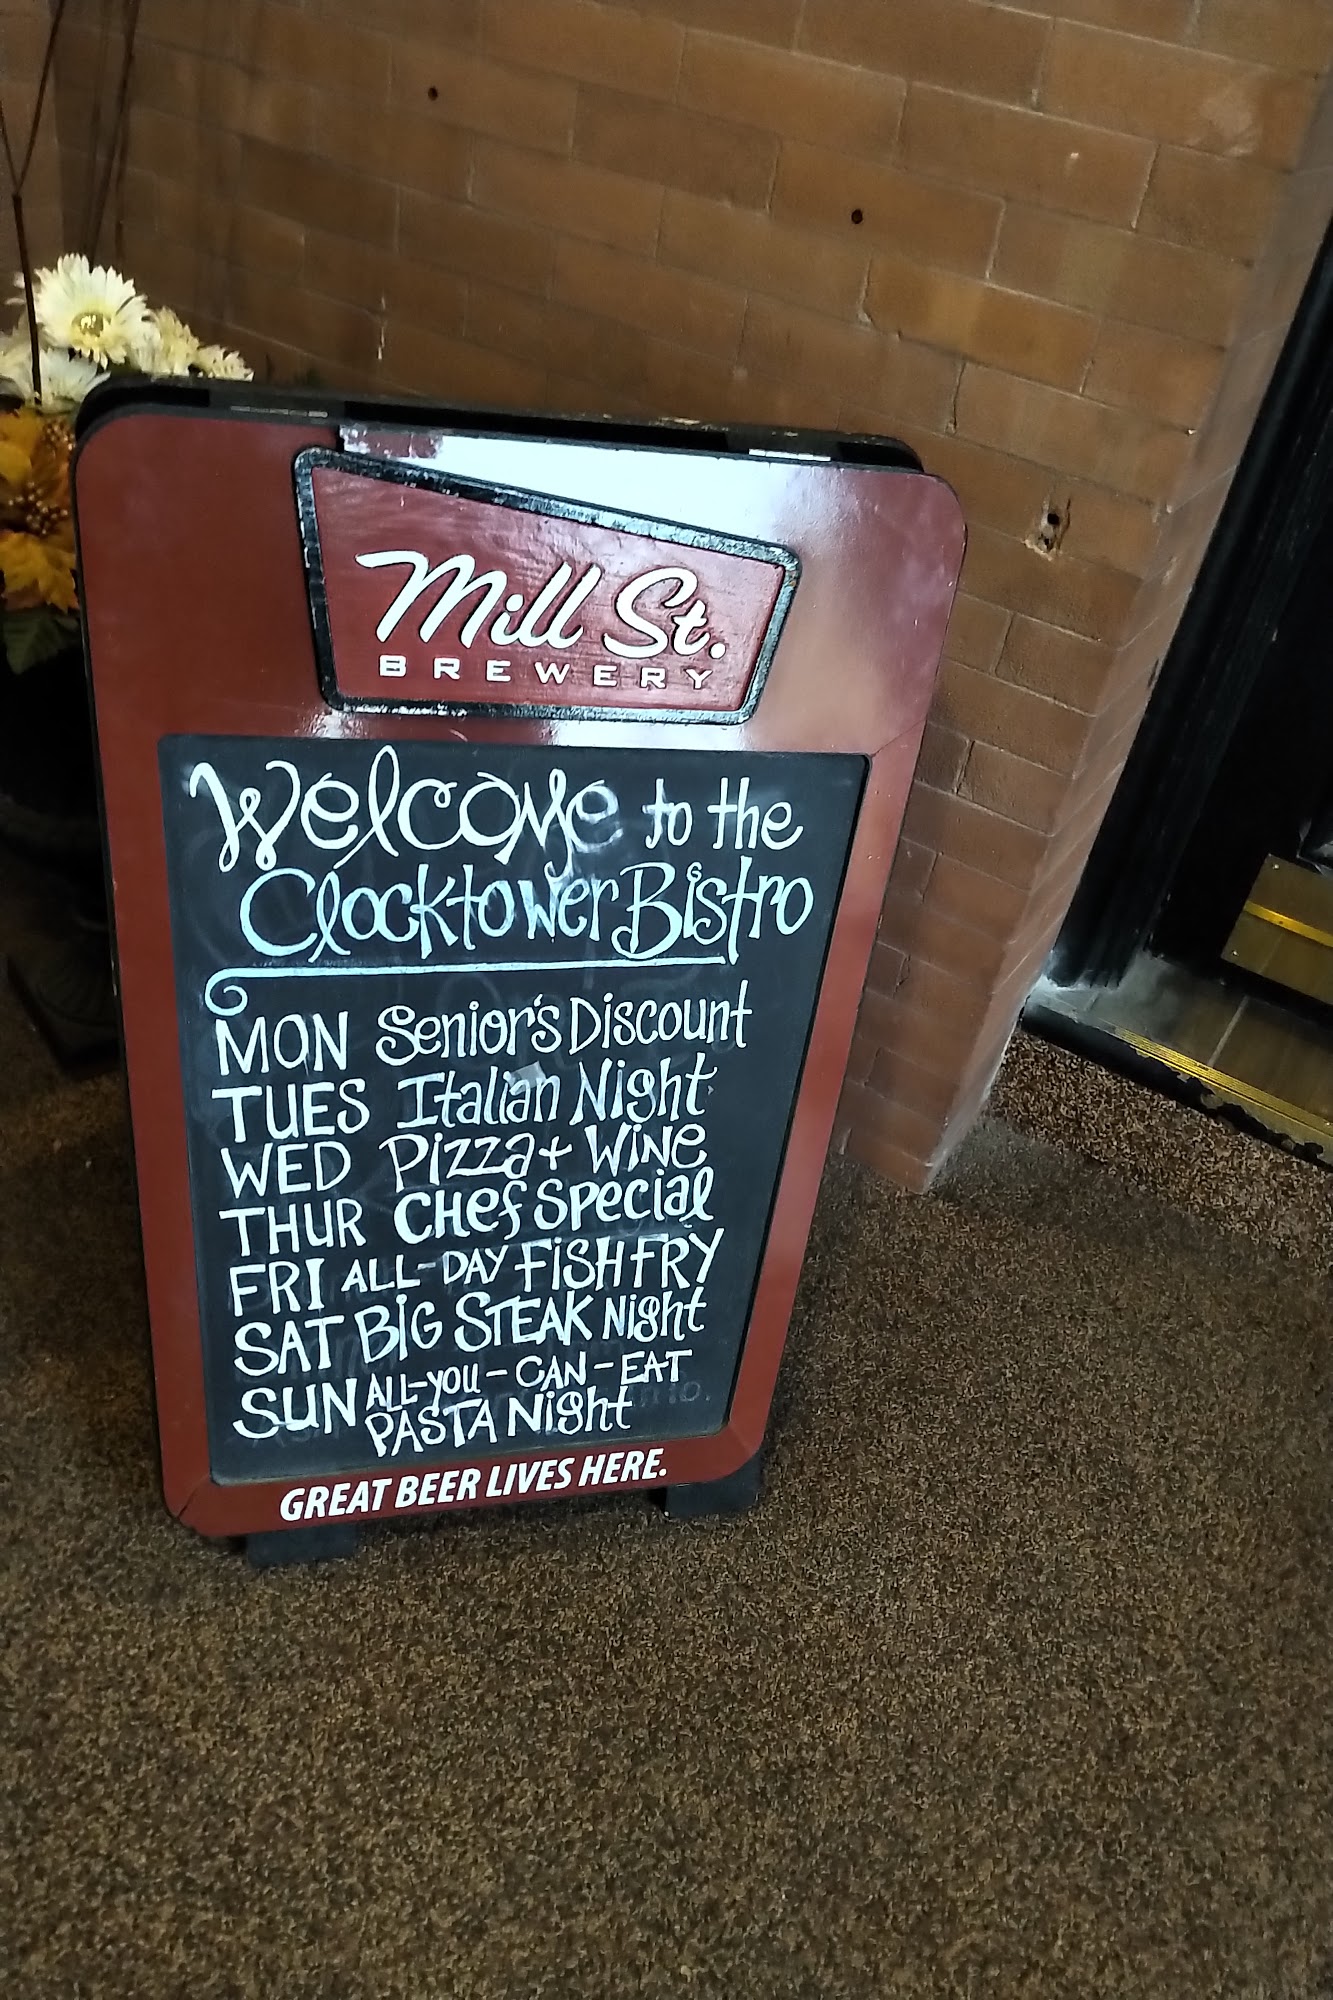 Mill St.
BREWERY
Welcome to the
Clocktower Bistro
MON Senior's Discount
TUES Italian Night
WED Pizza + Wine
THUR CHef Special
FRI ALL-DAY FISH FRY
SAT BiG STEAK Night
SUN ALL-YOU-CAN-EAT
PASTA Night
GREAT BEER LIVES HERE.